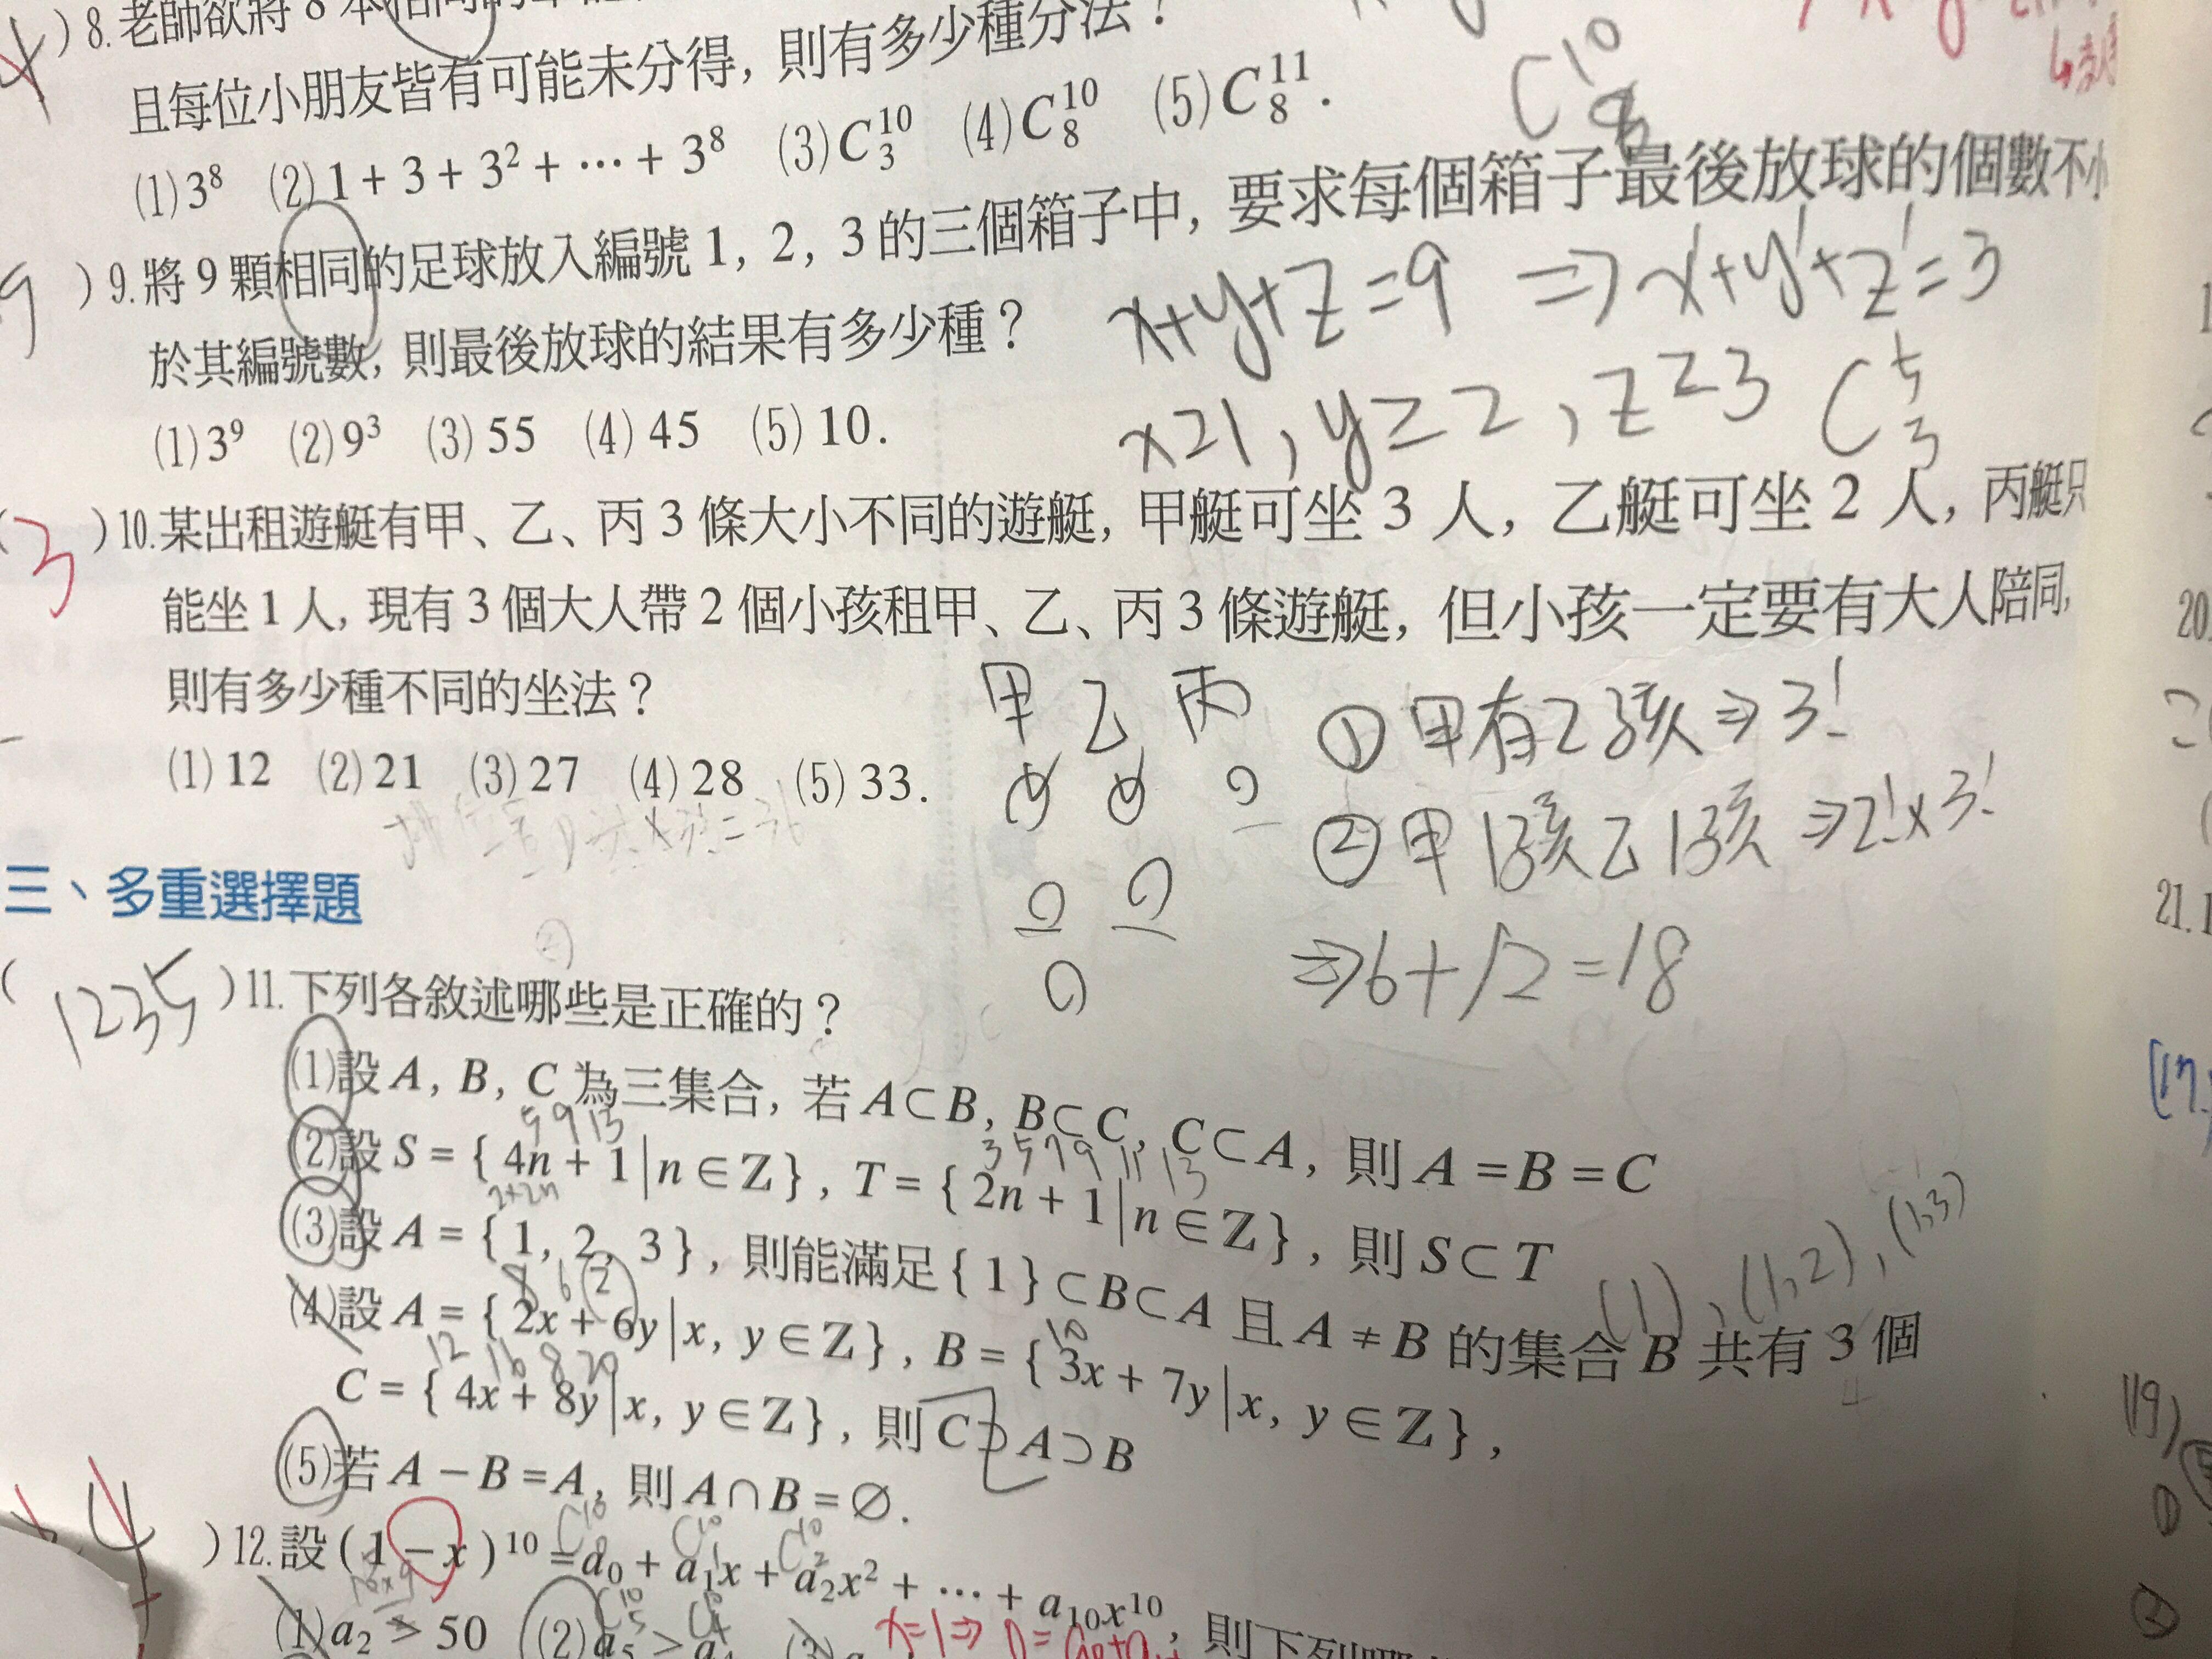 4 ) 8. 老師欲將 8 本相同的
且每位小朋友皆有可能未分得, 則有多少種分法?
(1) 3⁸ (2) 1 + 3 + 3² + ⋯ + 3⁸ (3) C¹⁰₃ (4) C¹⁰₈ (5) C¹¹₈ .
C¹⁰₈
9 ) 9. 將 9 顆相同的足球放入編號 1, 2, 3 的三個箱子中, 要求每個箱子最後放球的個數不小
於其編號數, 則最後放球的結果有多少種?
x+y+z=9 ⇒ x'+y'+z'=3
x≥1, y≥2, z≥3 C⁵₃
(1) 3⁹ (2) 9³ (3) 55 (4) 45 (5) 10 .
( 3 ) 10. 某出租遊艇有甲、乙、丙 3 條大小不同的遊艇, 甲艇可坐 3 人, 乙艇可坐 2 人, 丙艇只
能坐 1 人, 現有 3 個大人帶 2 個小孩租甲、乙、丙 3 條遊艇, 但小孩一定要有大人陪同,
則有多少種不同的坐法?
(1) 12 (2) 21 (3) 27 (4) 28 (5) 33 .
甲 乙 丙
① 甲有2孩 ⇒ 3!
② 甲1孩乙1孩 ⇒ 2!×3!
⇒ 6+12=18
三、多重選擇題
( 1235 ) 11. 下列各敘述哪些是正確的?
(1) 設 A, B, C 為三集合, 若 A⊂B, B⊂C, C⊂A, 則 A = B = C
5 9 13
3 5 7 9 11 13
(2) 設 S = { 4n + 1 | n ∈ Z } , T = { 2n + 1 | n ∈ Z } , 則 S⊂T
2+2n
(1), (1,2), (1,3)
(3) 設 A = { 1, 2, 3 } , 則能滿足 { 1 } ⊂ B ⊂ A 且 A ≠ B 的集合 B 共有 3 個
8 6 2
10
4
(4) 設 A = { 2x + 6y | x, y ∈ Z } , B = { 3x + 7y | x, y ∈ Z } ,
12 16 8 20
C = { 4x + 8y | x, y ∈ Z } , 則 C⊃A⊃B
(5) 若 A − B = A, 則 A ∩ B = ∅ .
4 ) 12. 設 (1 − x)¹⁰ = a₀ + a₁x + a₂x² + ⋯ + a₁₀x¹⁰, 則下列
C¹⁰₀ C¹⁰₁ C¹⁰₂
(1) a₂ > 50 (2) a₅ >
C¹⁰₅ C¹⁰₄
x=1⇒ 0=
20.
21. 1
(17)
(19)
①
②